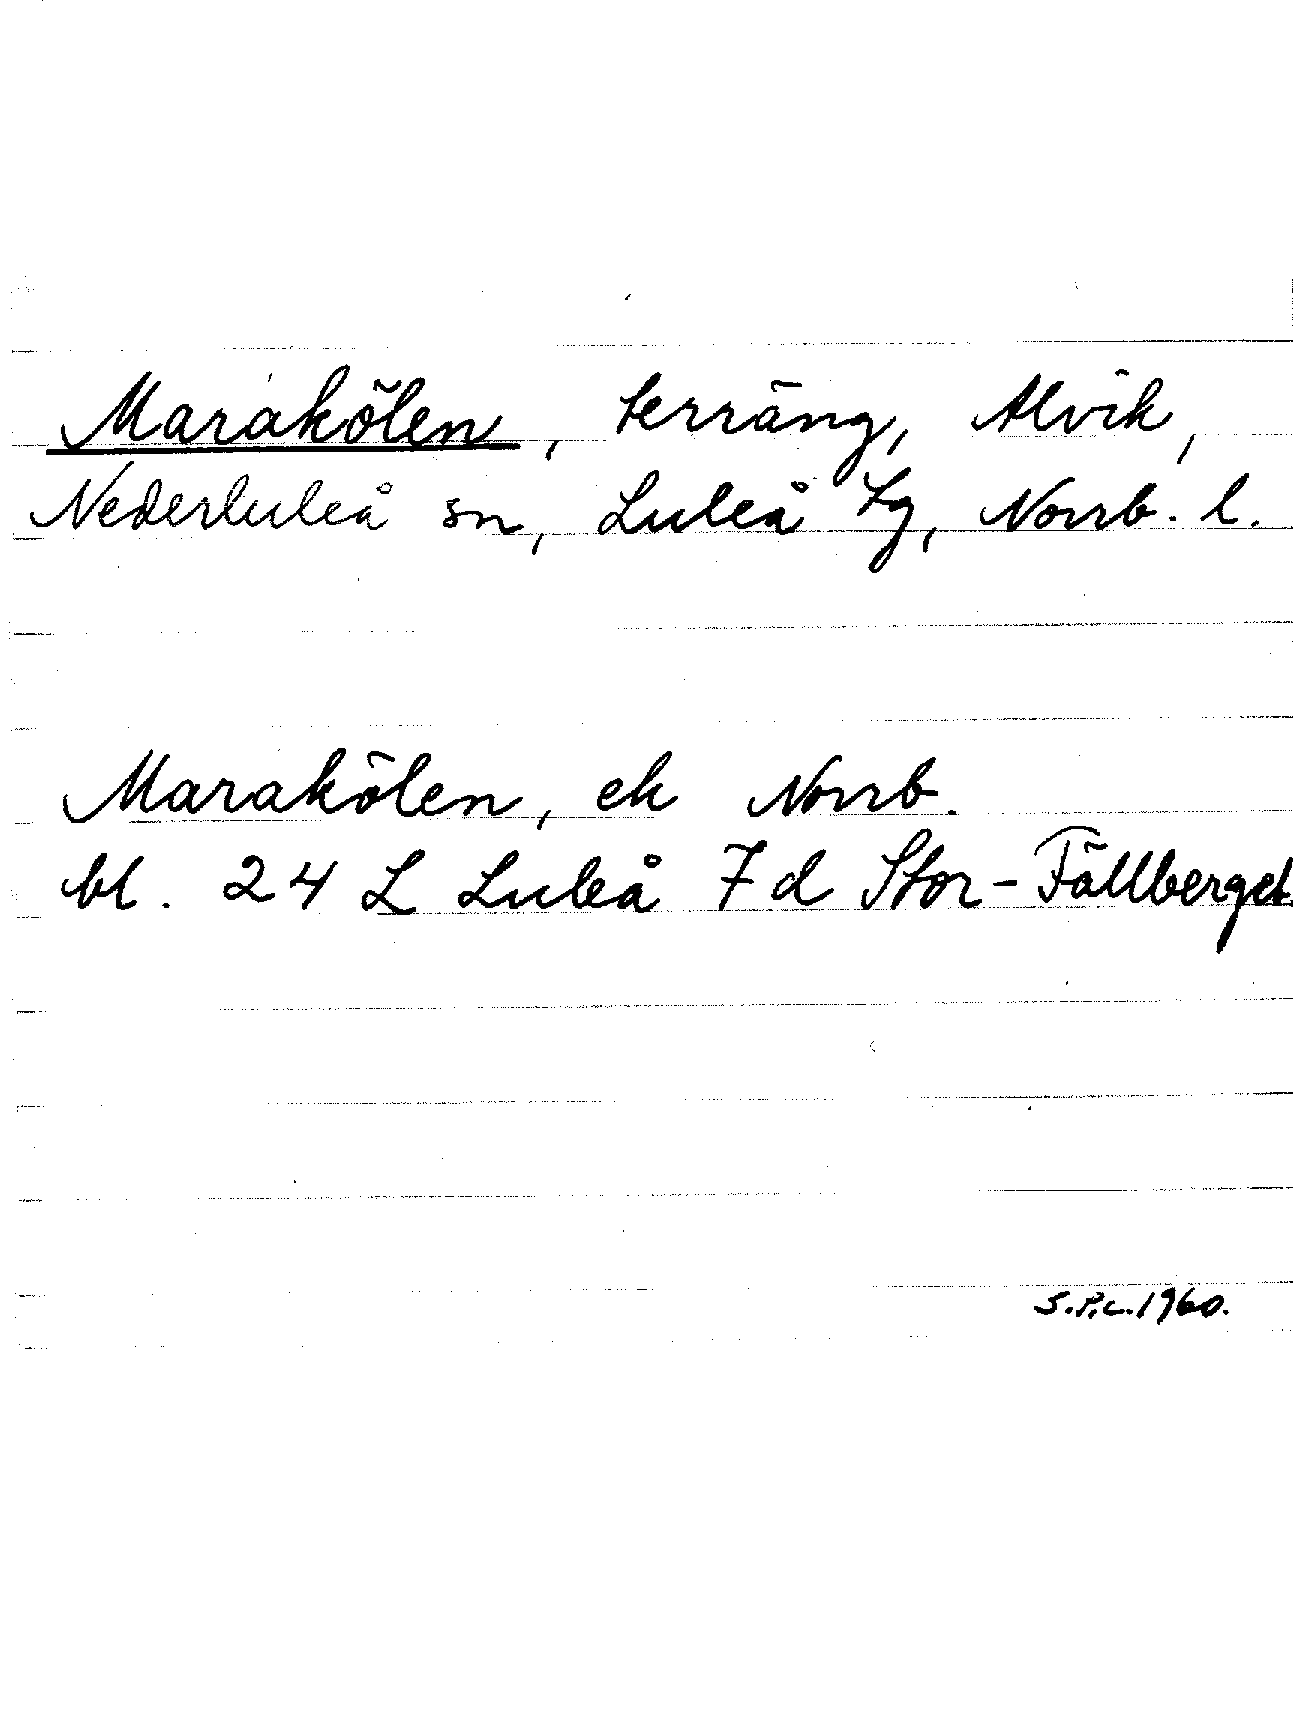 Marakölen, terräng, Alvik,
Nederluleå sn, Luleå tg, Norrb. l.
Marakölen, ek Norrb.
bl. 24 L Luleå 7d Stor-Fällberget
S.P.L. 1960.